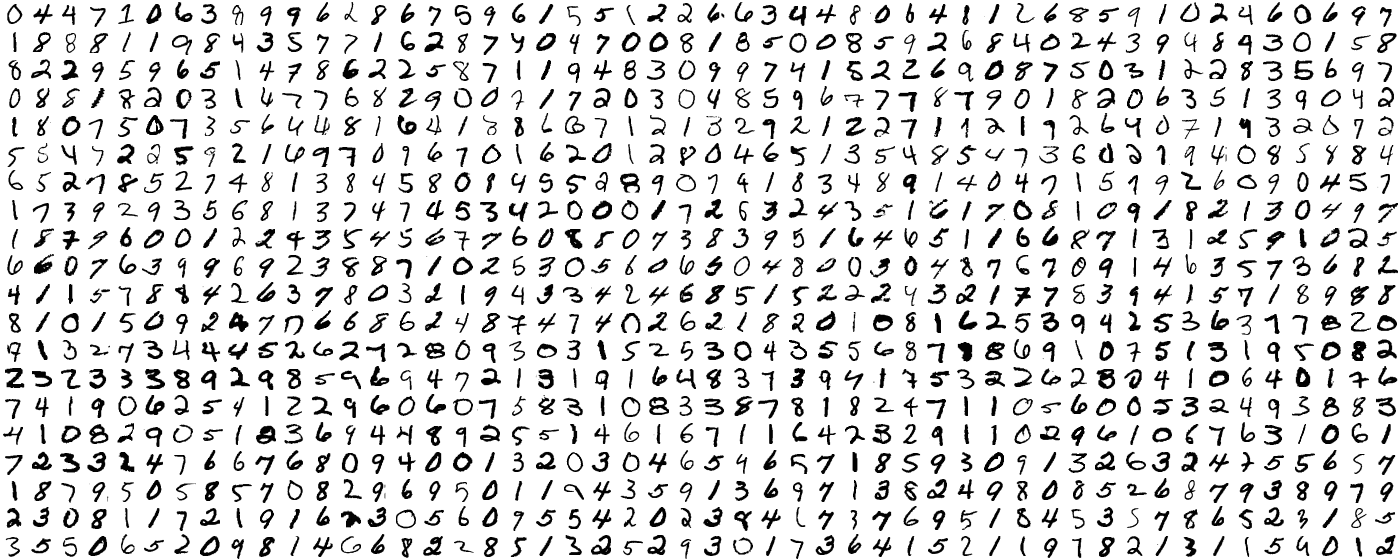 0 4 4 7 1 0 6 3 8 9 9 6 2 8 6 7 5 9 6 1 5 5 1 2 2 6 6 3 4 4 8 0 6 4 1 1 2 6 8 5 9 1 0 2 4 6 0 6 9 7
1 8 8 8 1 1 9 8 4 3 5 7 7 1 6 2 8 7 4 0 4 7 0 0 8 1 8 5 0 0 8 5 9 2 6 8 4 0 2 4 3 9 4 8 9 3 0 1 5 8
8 2 2 9 5 9 6 5 1 4 7 8 6 2 2 5 8 7 1 1 9 4 8 3 0 9 9 7 4 1 5 2 2 6 9 0 8 7 5 0 3 1 2 2 8 3 5 6 9 7
0 8 8 1 8 2 0 3 1 4 7 7 6 8 2 9 0 0 7 1 7 2 0 3 0 4 8 5 9 6 7 7 7 8 7 9 0 1 8 2 0 6 3 5 1 3 9 0 4 2
1 8 0 7 5 0 7 3 5 6 4 4 8 1 6 4 1 8 8 6 0 7 1 2 1 3 2 9 2 1 2 2 7 1 1 2 1 9 2 6 4 0 7 1 9 3 2 0 7 2
5 5 4 7 2 2 5 9 2 1 6 9 7 0 9 6 7 0 1 6 2 0 1 2 8 0 4 6 5 1 3 5 4 8 5 4 7 3 6 0 2 1 9 4 0 8 5 8 8 4
6 5 2 7 8 5 2 7 4 8 1 3 8 4 5 8 0 8 4 5 5 2 8 9 0 7 9 1 8 3 4 8 9 1 4 0 4 7 1 5 9 9 2 6 0 9 0 4 5 7
1 7 3 9 2 9 3 5 6 8 1 3 7 4 7 4 5 3 4 2 0 0 0 1 7 2 6 3 2 4 3 5 1 6 1 7 0 8 1 0 9 1 8 2 1 3 0 4 9 7
1 8 7 9 6 0 0 1 2 2 4 3 5 4 5 6 7 7 6 0 8 8 0 7 3 8 3 9 5 1 6 4 6 5 1 1 6 6 8 7 1 3 1 2 5 9 1 0 2 5
6 6 0 7 6 3 9 9 6 9 2 3 8 8 7 1 0 2 5 3 0 5 6 0 6 5 0 4 8 0 0 3 0 4 8 7 6 7 0 9 1 4 6 3 5 7 3 6 8 2
4 1 1 5 7 8 8 4 2 6 3 7 8 0 3 2 1 9 4 3 3 4 2 4 6 8 5 1 5 2 2 2 4 3 2 1 7 7 8 3 9 4 1 5 7 1 8 9 8 8
8 1 0 1 5 0 9 2 4 7 7 6 6 8 6 2 4 8 7 4 7 4 0 2 6 2 1 8 2 0 1 0 8 1 6 2 5 3 9 4 2 5 3 6 3 7 7 8 2 0
9 1 3 2 7 3 4 4 4 5 2 6 2 7 2 8 0 9 3 0 3 1 5 2 5 3 0 4 3 5 5 6 8 7 8 8 6 9 1 0 7 5 1 3 1 9 5 0 8 2
2 3 2 3 3 3 8 9 2 9 8 5 9 6 9 4 7 2 1 3 1 9 1 6 4 8 3 7 3 9 4 1 7 5 3 2 2 6 2 8 0 4 1 0 6 4 0 1 7 6
7 4 1 9 0 6 2 5 4 1 2 2 9 6 0 6 0 7 5 8 3 1 0 8 3 3 8 7 8 1 8 2 4 7 1 1 0 5 6 0 0 5 3 2 4 9 3 8 8 3
4 1 0 8 2 9 0 5 1 2 3 6 9 4 4 8 9 2 5 5 1 4 6 1 6 7 1 1 6 4 2 3 2 9 1 1 0 2 9 6 1 0 6 7 6 3 1 0 6 1
7 2 3 3 2 4 7 6 6 7 6 8 0 9 4 0 0 1 3 2 0 3 0 4 6 5 9 6 5 7 1 8 5 9 3 0 9 1 3 2 6 3 2 4 7 5 5 6 5 7
1 8 7 9 5 0 5 8 5 7 0 8 2 9 6 9 5 0 1 1 9 4 3 5 9 1 3 6 9 7 1 3 8 2 4 9 8 0 8 5 2 6 8 7 9 3 8 9 7 9
2 3 0 8 1 1 7 2 1 9 1 6 2 3 0 5 6 0 9 5 5 4 2 0 2 3 8 4 6 7 3 7 6 9 5 1 8 4 5 3 5 7 8 6 5 2 3 1 8 5
3 5 5 0 6 5 2 0 9 8 1 4 6 6 8 2 2 8 5 1 3 2 5 2 9 3 0 1 7 3 6 4 1 5 2 1 1 9 7 8 2 1 3 1 1 5 9 0 1 5